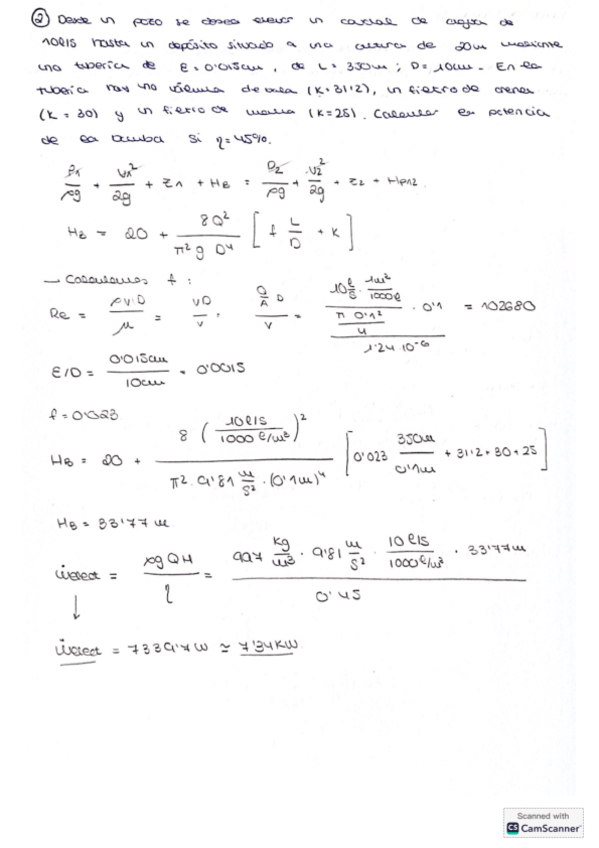 ② Desde un pozo se desea elevar un caudal de agua de
10l/s hasta un depósito situado a una altura de 20m mediante
una tubería de ε = 0'015cm, de L = 350m ; D = 10cm. En la
tubería hay una válvula de bola (k = 31'2), un filtro de
(k = 30) y un filtro de (k = 25). Calcular la potencia
de la bomba si η = 45%.
P1/ρg + V1²/2g + Z1 + HB = P2/ρg + V2²/2g + Z2 + Hp12
HB = 20 + 8Q²/π² g D⁴ [ f L/D + k ]
→ Calculamos f :
Re = ρVD/μ = VD/ν = Q/A D/ν = 10 l/s · 1m³/1000l / π 0'1²/4 · 0'1 / 1'24·10⁻⁶ = 102680
ε/D = 0'015cm/10cm = 0'0015
f = 0'023
HB = 20 + 8 (10l/s / 1000 l/m³)² / π² · 9'81 m/s² · (0'1m)⁴ [ 0'023 350m/0'1m + 31'2 + 30 + 25 ]
HB = 33'77 m
Ẇelect = ρgQH/η = 997 kg/m³ · 9'81 m/s² · 10 l/s / 1000 l/m³ · 33'77m / 0'45
↓
Ẇelect = 7339'7 W ≃ 7'34 KW
Scanned with
CS CamScanner